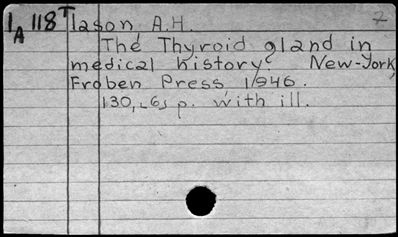 1A 118T Iason, A.H. 7
The Thyroid gland in
medical history. New-York,
Froben Press 1946.
130, [6] p. with ill.